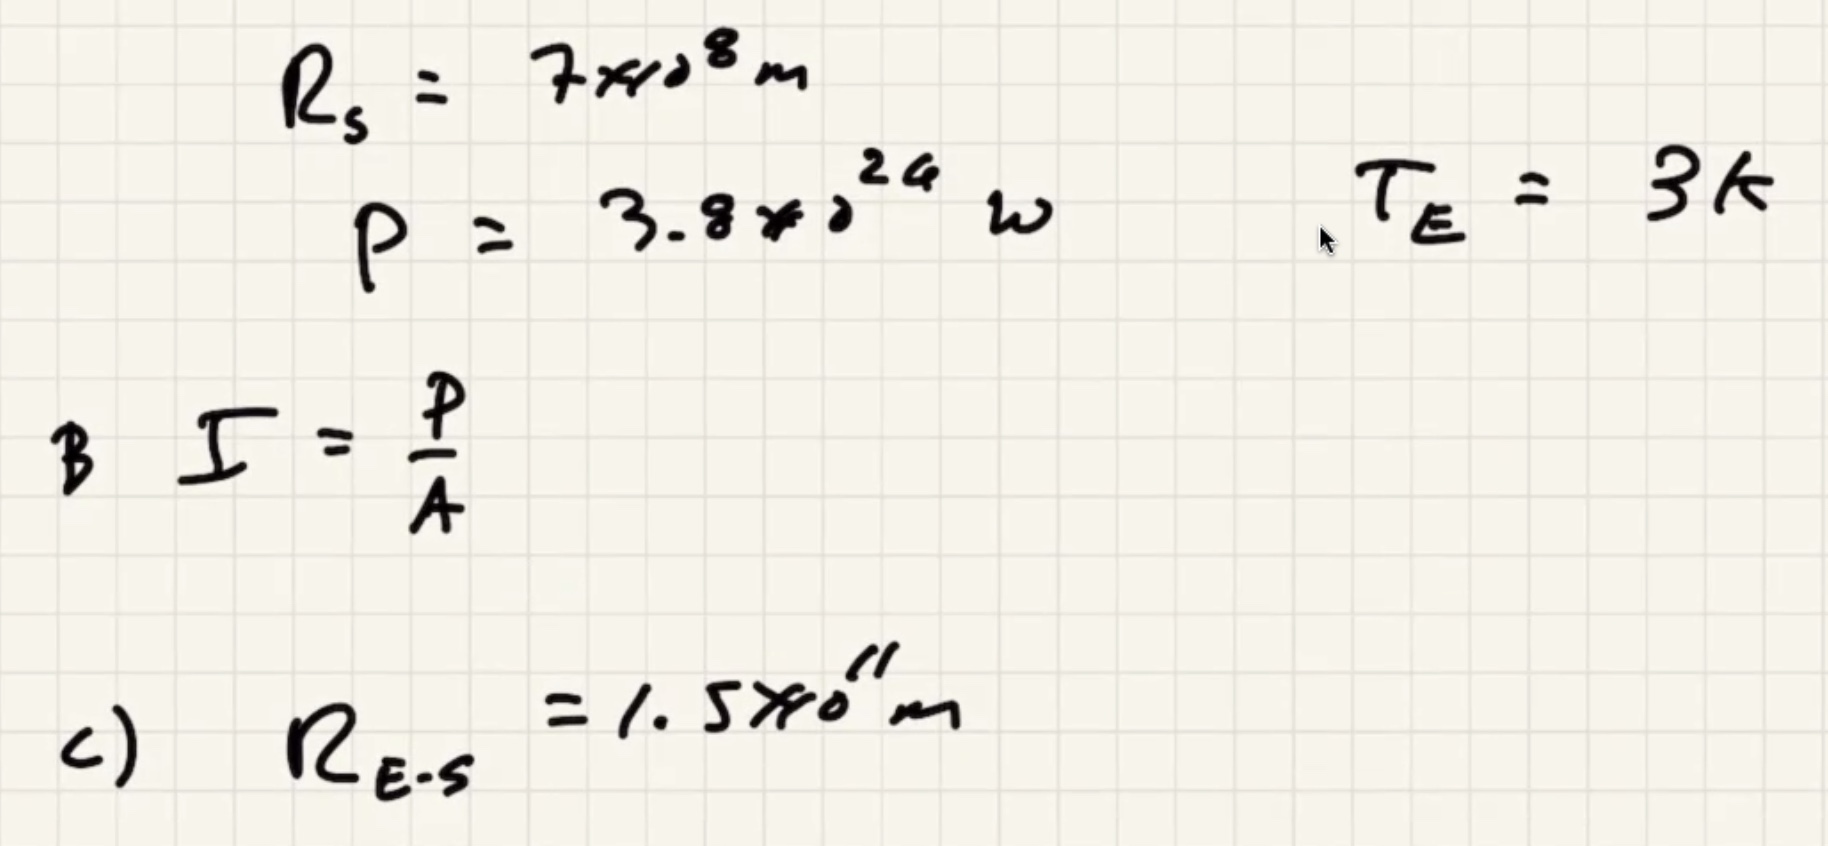 R_S = 7×10^8 m
P = 3.8×10^24 W
T_E = 3K
B I = P/A
C) R_E-S = 1.5×10^11 m